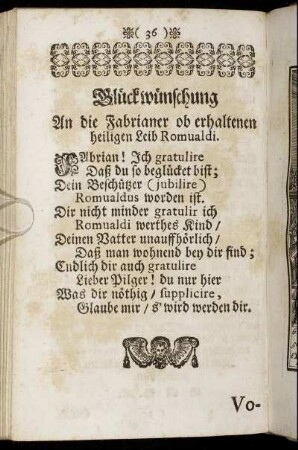 ( 36 )
Glückwünschung
An die Fabrianer ob erhaltenen
heiligen Leib Romualdi.
FAbrian! Ich gratulire
Daß du so beglücket bist;
Dein Beschützer (jubilire)
Romualdus worden ist.
Dir nicht minder gratulir ich
Romualdi werthes Kind /
Deinen Vatter unauffhörlich /
Daß man wohnend bey dir find;
Endlich dir auch gratulire
Lieber Pilger! du nur hier
Was dir nöthig / supplicire,
Glaube mir / s' wird werden dir.
Vo-